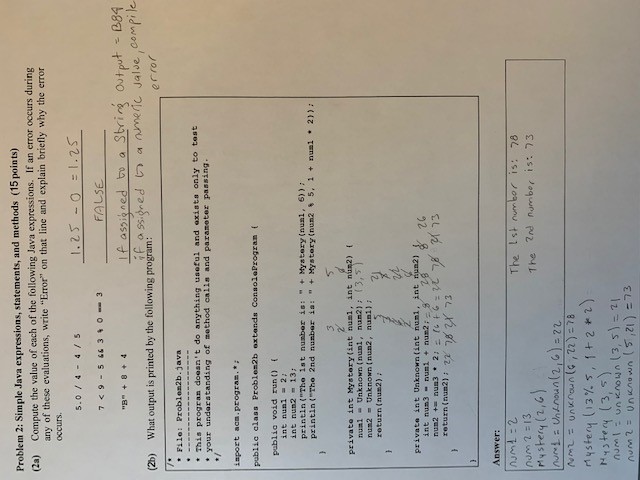 Problem 2: Simple Java expressions, statements, and methods (15 points)
(2a) Compute the value of each of the following Java expressions. If an error occurs during
any of these evaluations, write "Error" on that line and explain briefly why the error
occurs.
5.0 / 4 - 4 / 5 1.25 - 0 = 1.25
7 < 9 - 5 && 3 % 0 == 3 FALSE
"B" + 8 + 4 If assigned to a String output = B84
if assigned to a numeric value, compile
error
(2b) What output is printed by the following program:
/*
* File: Problem2b.java
* --------------------
* This program doesn't do anything useful and exists only to test
* your understanding of method calls and parameter passing.
*/
import acm.program.*;
public class Problem2b extends ConsoleProgram {
public void run() {
int num1 = 2;
int num2 = 13;
println("The 1st number is: " + Mystery(num1, 6));
println("The 2nd number is: " + Mystery(num2 % 5, 1 + num1 * 2));
}
3 5
private int Mystery(int num1, int num2) {
num1 = Unknown(num1, num2); (3,5)
num2 = Unknown(num2, num1);
return(num2);
}
private int Unknown(int num1, int num2) {
int num3 = num1 + num2; = 8 28 8 26
num2 += num3 * 2; = 16+6 = 22 78 21 73
return(num2); 22 78 21 73
}
}
Answer:
num1 = 2 The 1st number is: 78
num2 = 13 The 2nd number is: 73
Mystery (2,6)
num1 = Unknown (2,6) = 22
num2 = unknown (6,22) = 78
Mystery (13%5, 1+2*2)
Mystery (3,5)
num1 = unknown (3,5) = 21
num2 = unknown (5,21) = 73